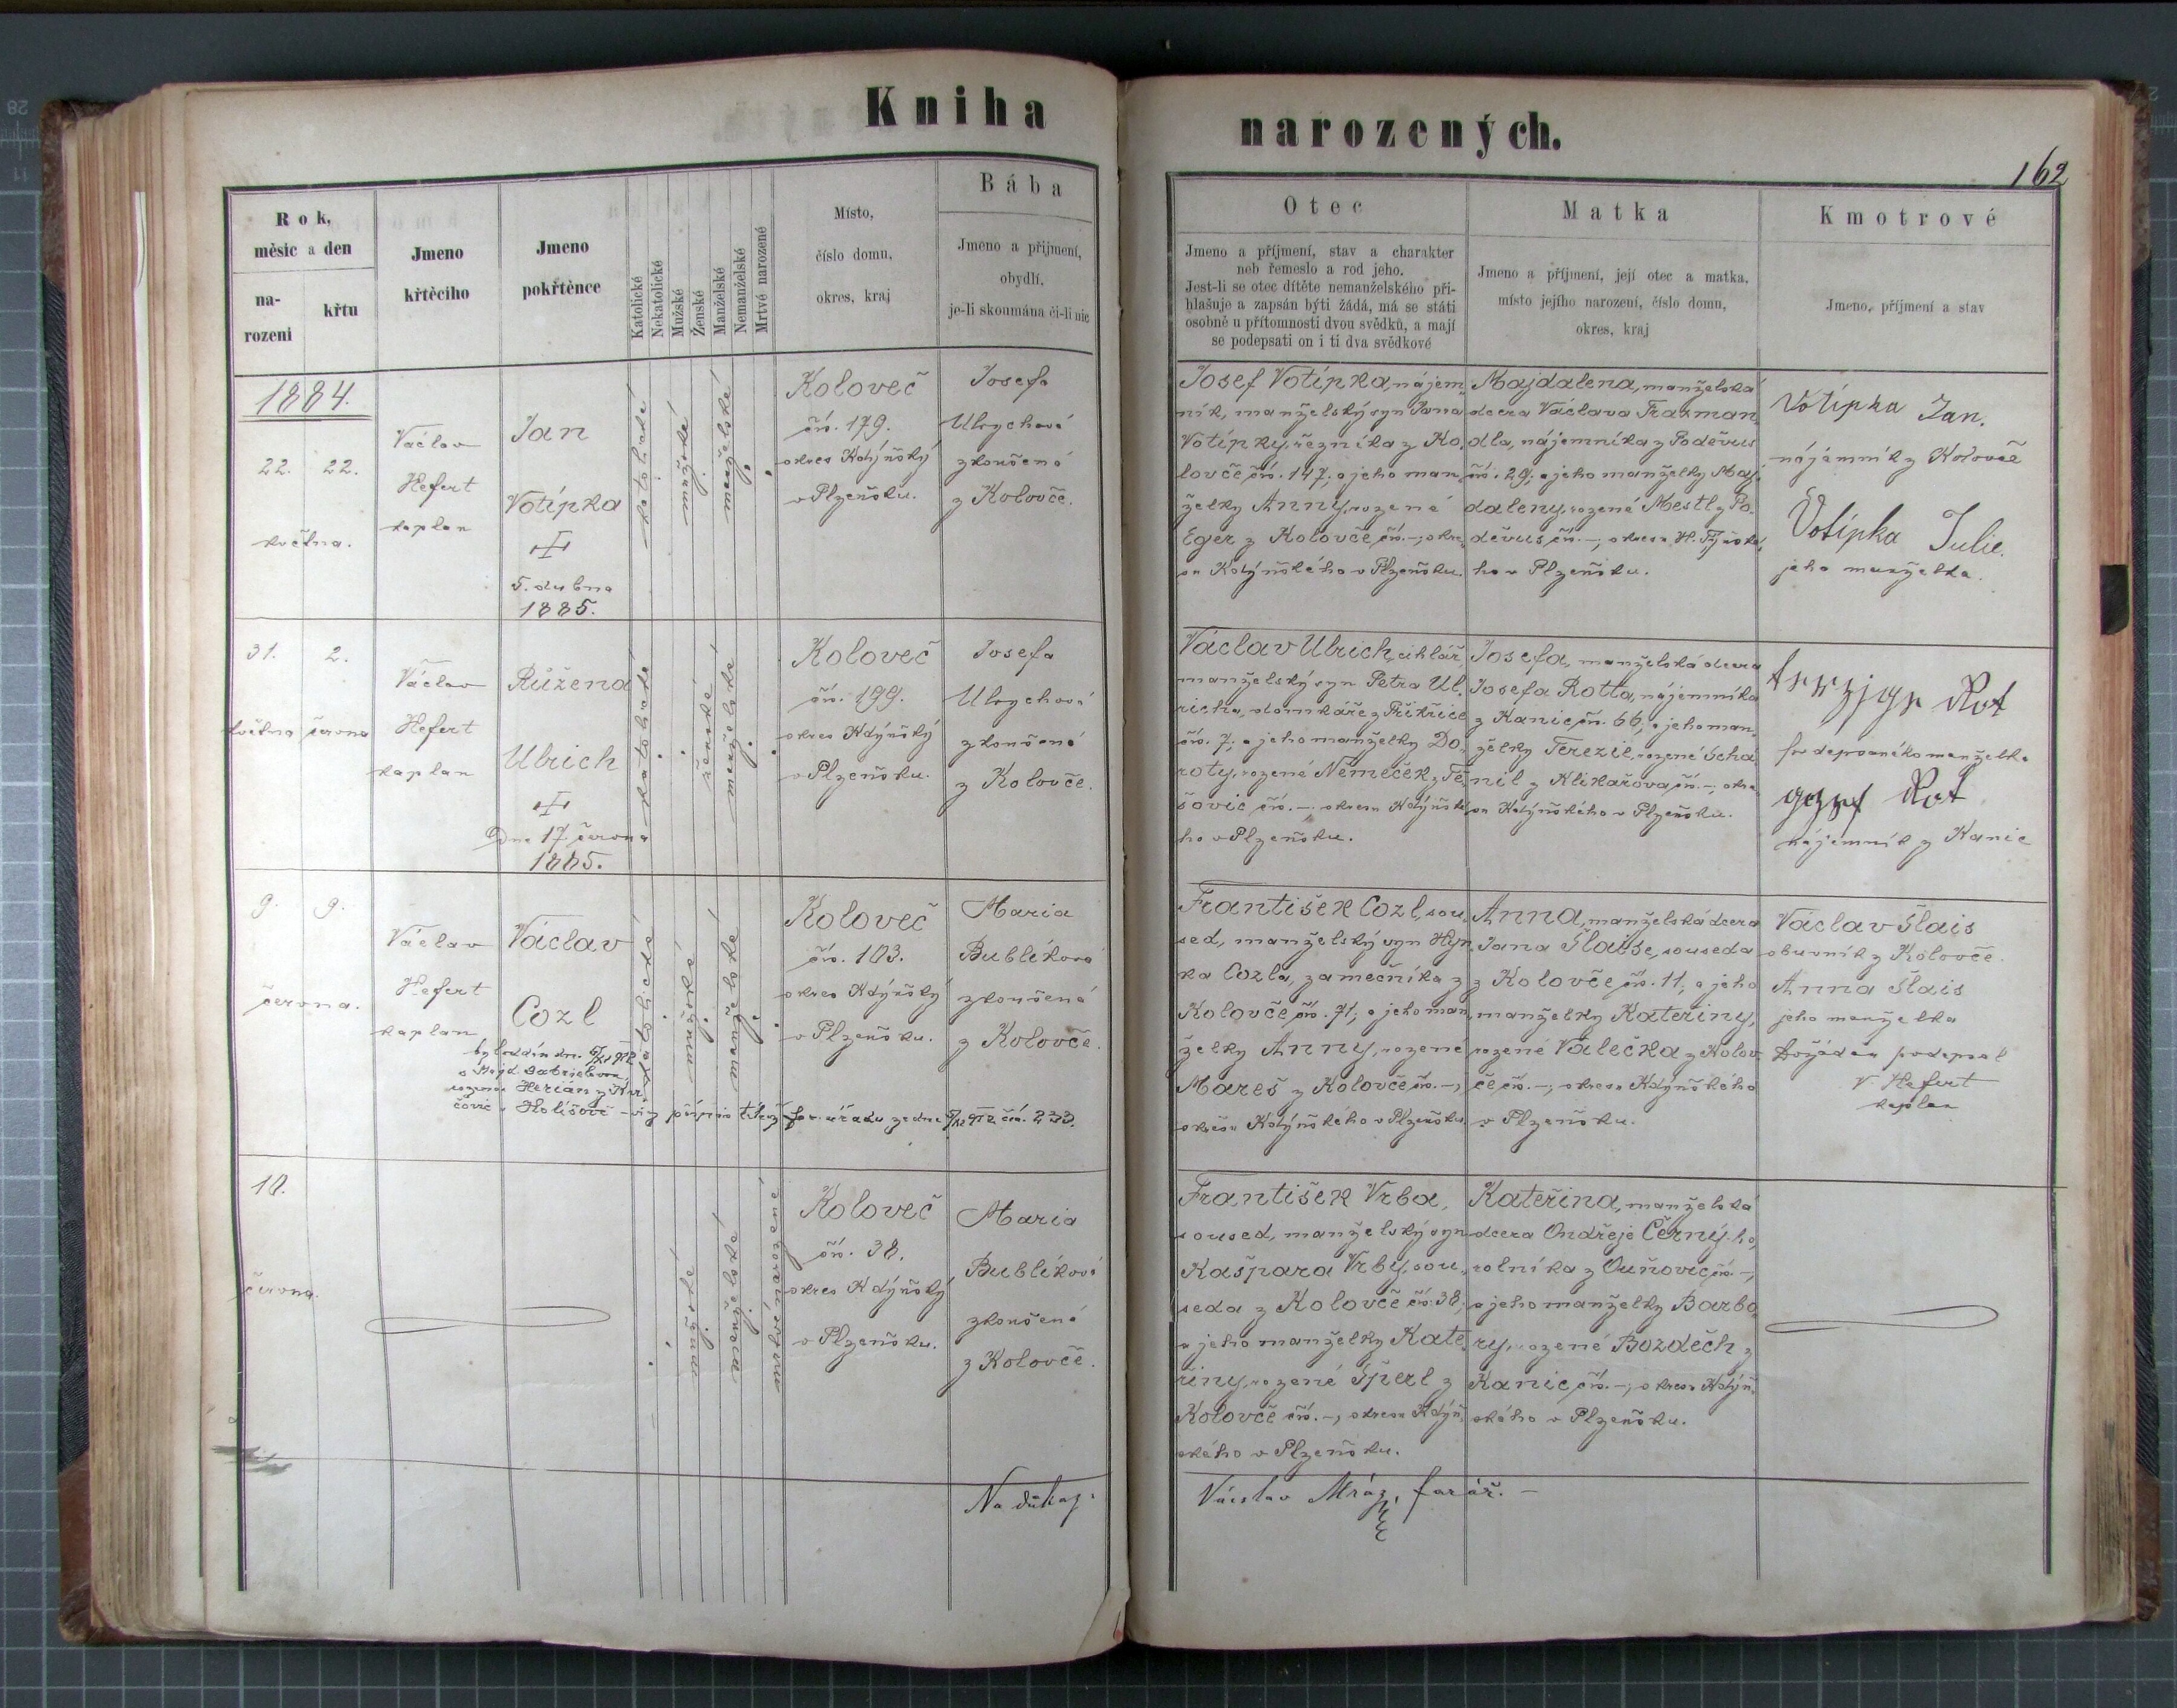 Kniha
narozených.
162
Rok,
měsíc a den
na-
rozeni
křtu
Jmeno
křtěcího
Jmeno
pokřtěnce
Katolické
Nekatolické
Mužské
Ženské
Manželské
Nemanželské
Mrtvé narozené
Místo,
číslo domu,
okres, kraj
Bába
Jmeno a přijmení,
obydlí,
je-li skoumána či-li nic
Otec
Jmeno a příjmení, stav a charakter
neb řemeslo a rod jeho.
Jest-li se otec dítěte nemanželského při-
hlašuje a zapsán býti žádá, má se státi
osobně u přítomnosti dvou svědků, a mají
se podepsati on i ti dva svědkové
Matka
Jmeno a příjmení, její otec a matka,
místo jejího narození, číslo domu,
okres, kraj
Kmotrové
Jmeno, příjmení a stav
1884.
22. 22.
května.
Václav
Hefert
kaplan
Jan
Votípka
5. dubna
1885.
katolické
mužské
manželské
Koloveč
čís. 179.
okres Kdýňský
v Plzeňsku.
Josefa
Ulrychová
zkoušená
z Kolovče.
Josef Votípka, nájem
ník, manželský syn Jana
Votípky, řezníka z Ko
lovče čís. 147; a jeho man
želky Anny, rozené
Eger z Kolovče čís. -; okre
su Kdýňského v Plzeňsku.
Majdalena, manželská
dcera Václava Frazman
dla, nájemníka z Poděvus
čís. 29; a jeho manželky Maj
daleny, rozené Mestl z Po
děvus čís. -; okresu H. Týnské
ho v Plzeňsku.
Votipka Jan.
nájemník z Kolovče
Votipka Julie.
jeho manželka.
31. 2.
května června
Václav
Hefert
kaplan
Růžena
Ulrich
Dne 17. června
1885.
katolické
ženské
manželské
Koloveč
čís. 199.
okres Kdýňský
v Plzeňsku.
Josefa
Ulrychová
zkoušená
z Kolovče.
Václav Ulrich, cihlář,
manželský syn Petra Ul
richa, domkáře z Přikřice
čís. 7; a jeho manželky Do
roty, rozené Němeček z Tě
šovic čís. -; okresu Kdýňské
ho v Plzeňsku.
Josefa, manželská dcera
Josefa Rotta, nájemníka
z Kanic čís. 66; a jeho man
želky Terezie, rozené Scha
nil z Hlikařova čís. -; okre
su Kdýňského v Plzeňsku.
Rot
Rot
nájemník z Kanic
9. 9.
června.
Václav
Hefert
kaplan
Václav
Cozl
katolické
mužské
manželské
Koloveč
čís. 103.
okres Kdýňský
v Plzeňsku.
Maria
Bublíková
zkoušená
z Kolovče.
František Cozl, sou
sed, manželský syn Hyn
ka Cozla, zámečníka z
Kolovče čís. 71; a jeho man
želky Anny, rozené
Mareš z Kolovče čís. -;
okresu Kdýňského v Plzeňsku.
Anna, manželská dcera
Jana Šlaisse, souseda
z Kolovče čís. 11; a jeho
manželky Kateřiny,
rozené Valečka z Kolov
če čís. -; okresu Kdýňského
v Plzeňsku.
Václav Šlais
obuvník z Kolovče.
Anna Šlais
jeho manželka
požádán podepsal
V. Hefert
kaplan
10.
června.
mužské
manželské
mrtvé narozené
Koloveč
čís. 38.
okres Kdýňský
v Plzeňsku.
Maria
Bublíková
zkoušená
z Kolovče.
František Vrba,
soused, manželský syn
Kašpara Vrby, sou
seda z Kolovče čís. 38;
a jeho manželky Kate
řiny, rozené Šperl z
Kolovče čís. -; okresu Kdýň
ského v Plzeňsku.
Kateřina, manželská
dcera Ondřeje Černýho,
rolníka z Ouňovic čís. -;
a jeho manželky Barbo
ry, rozené Bozděch z
Kanic čís. -; okresu Kdýň
ského v Plzeňsku.
Na důkaz:
Václav Mráz, farář. -